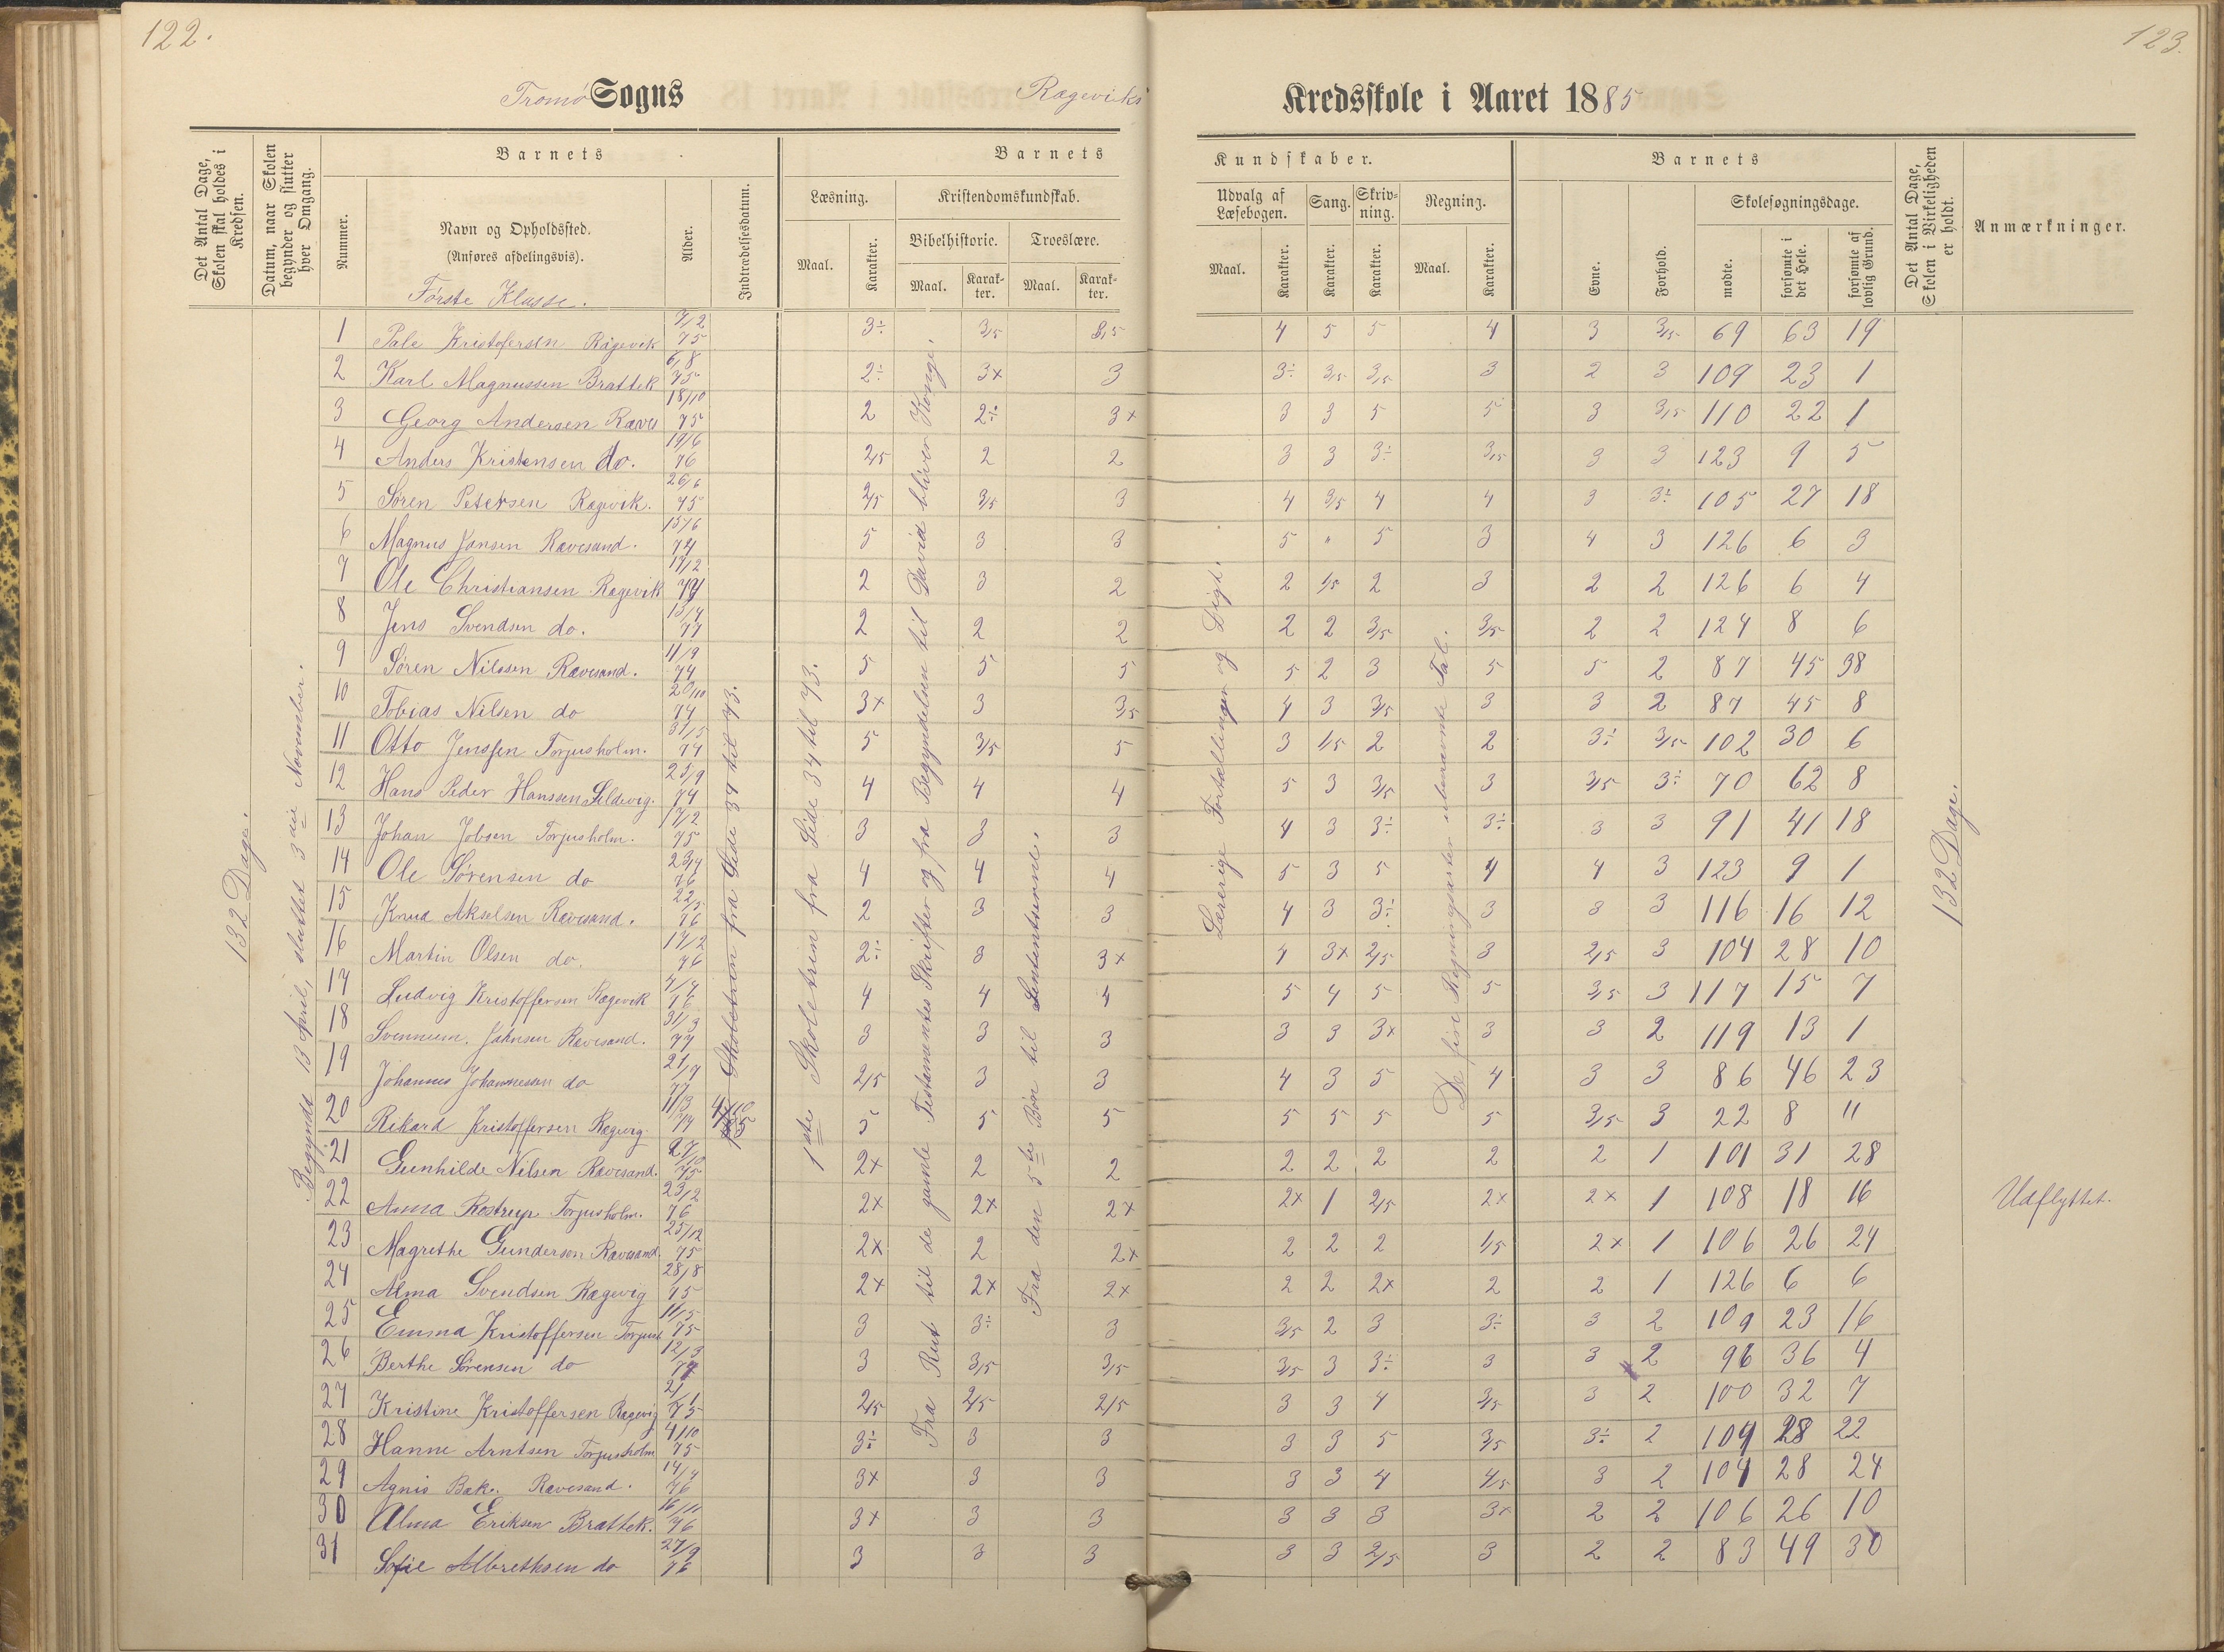 122.
123.
Tromø Sogns Rægeviks Kredsskole i Aaret 1885
Det Antal Dage, Skolen skal holdes i Kredsen.
Datum, naar Skolen begynder og slutter hver Omgang.
Nummer.
Barnets
Navn og Opholdssted.
(Anføres afdelingsvis).
Første Klasse.
Alder.
Indtrædelsesdatum.
Barnets Kundskaber.
Læsning.
Maal.
Karakter.
Kristendomskundskab.
Bibelhistorie.
Maal.
Karakter.
Troeslære.
Maal.
Karakter.
Udvalg af Læsebogen.
Maal.
Karakter.
Sang.
Karakter.
Skrivning.
Karakter.
Regning.
Maal.
Karakter.
Barnets
Evne.
Forhold.
Skolesøgningsdage.
mødte.
forsømte i det Hele.
forsømte af lovlig Grund.
Det Antal Dage, Skolen i Virkeligheden er holdt.
Anmærkninger.
132 Dage.
Begyndt 13 April, sluttet 3die November.
Skoletrin fra Side 34 til 73.
1ste Skoletrin fra Side 34 til 73.
Fra Rut til de gamle Testamentes Skrifter og fra Begyndelsen til David bliver Konge.
Fra den 5te Bøn til Sententserende.
Lærerige Fortællinger og Digt.
De fire Regningsarter i ubenævnte Tal.
132 Dage.
1 Pale Kristofersen Rägevik 7/2 75 3÷ 3/5 3,5 4 5 5 4 3 3/5 69 63 19
2 Karl Magnussen Brattek 6/8 75 2÷ 3× 3 3÷ 3/5 3/5 3 2 3 109 23 1
3 Georg Andersen Ræves 18/10 75 2 2÷ 3× 3 3 5 5 3 3/5 110 22 1
4 Anders Kristensen do. 19/6 76 2/5 2 2 3 3 3÷ 3/5 3 3 123 9 5
5 Søren Petersen Rægevik. 26/6 75 3/5 3/5 3 4 3/5 4 4 3 3÷ 105 27 18
6 Magnus Jansen Rævesand. 15/6 74 5 3 3 5 " 5 3 4 3 126 6 3
7 Ole Christiansen Rægevik 17/12 74 2 3 2 2 1/5 2 3 2 2 126 6 4
8 Jens Svendsen do. 13/4 77 2 2 2 2 2 3/5 3/5 2 2 124 8 6
9 Søren Nilssen Rævesand. 11/9 74 5 5 5 5 2 3 5 5 2 87 45 38
10 Tobias Nilsen do 20/10 74 3× 3 3/5 4 3 3/5 3 3 2 87 45 8
11 Otto Jenssen Torjusholm. 31/5 74 5 3/5 5 3 1/5 2 2 3÷ 3/5 102 30 6
12 Hans Peder Hanssen Sildevig. 25/9 74 4 4 4 5 3 3/5 3 3/5 3÷ 70 62 8
13 Johan Jobsen Torjusholm. 17/2 75 3 3 3 4 3 3÷ 3÷ 3 3 91 41 18
14 Ole Sørensen do 23/4 76 4 4 4 5 3 5 4 4 3 123 9 1
15 Knud Akselsen Rævesand. 22/5 76 2 3 3 4 3 3÷ 3 3 3 116 16 12
16 Martin Olsen do. 17/2 76 2÷ 3 3× 4 3× 2/5 3 2/5 3 104 28 10
17 Ludvig Kristoffersen Rægevik 4/4 76 4 4 4 5 4 5 5 3/5 3 117 15 7
18 Svennum. Jahnsen Rævesand. 31/3 77 3 3 3 3 3 3× 3 3 2 119 13 1
19 Johannes Johannessen do 21/9 77 2/5 3 3 4 3 5 4 3 3 86 46 23
20 Rikard Kristoffersen Rægevig. 11/3 74 5 5 5 5 5 5 5 3/5 3 22 8 "
21 Gunhilde Nilsen Rævesand. 27/10 75 2× 2 2 2 2 2 2 2 1 101 31 28
22 Anna Rostrup Torjusholm. 23/2 76 2× 2× 2× 2× 1 2/5 2× 2× 1 108 18 16 Udflyttet.
23 Magrethe Gundersen Rævesand. 25/12 75 2× 2 2× 2 2 2 1/5 2× 1 106 26 24
24 Alma Svendsen Rægevig 28/8 75 2× 2× 2× 2 2 2× 2 2 1 126 6 6
25 Emma Kristoffersen Torjush 11/5 75 3 3÷ 3 3/5 2 3 3÷ 3 2 109 23 16
26 Berthe Sørensen do 12/3 77 3 3/5 3/5 3/5 3 3÷ 3 3 2 96 36 4
27 Kristine Kristoffersen Rægevig 2/1 75 2/5 2/5 2/5 3 3 4 3/5 3 2 100 32 7
28 Hanne Arntsen Torjusholm 4/10 75 3÷ 3 3 3 3 5 3/5 3÷ 2 104 28 22
29 Agnis Bak. Rævesand. 14/4 76 3× 3 3 3 3 4 4/5 3 2 104 28 24
30 Alma Eriksen Brattek. 16/11 76 3× 3 3 3 3 3 3× 2 2 106 26 10
31 Sofie Albrethsen do 27/9 76 3 3 3 3 3 2/5 3 2 2 83 49 30